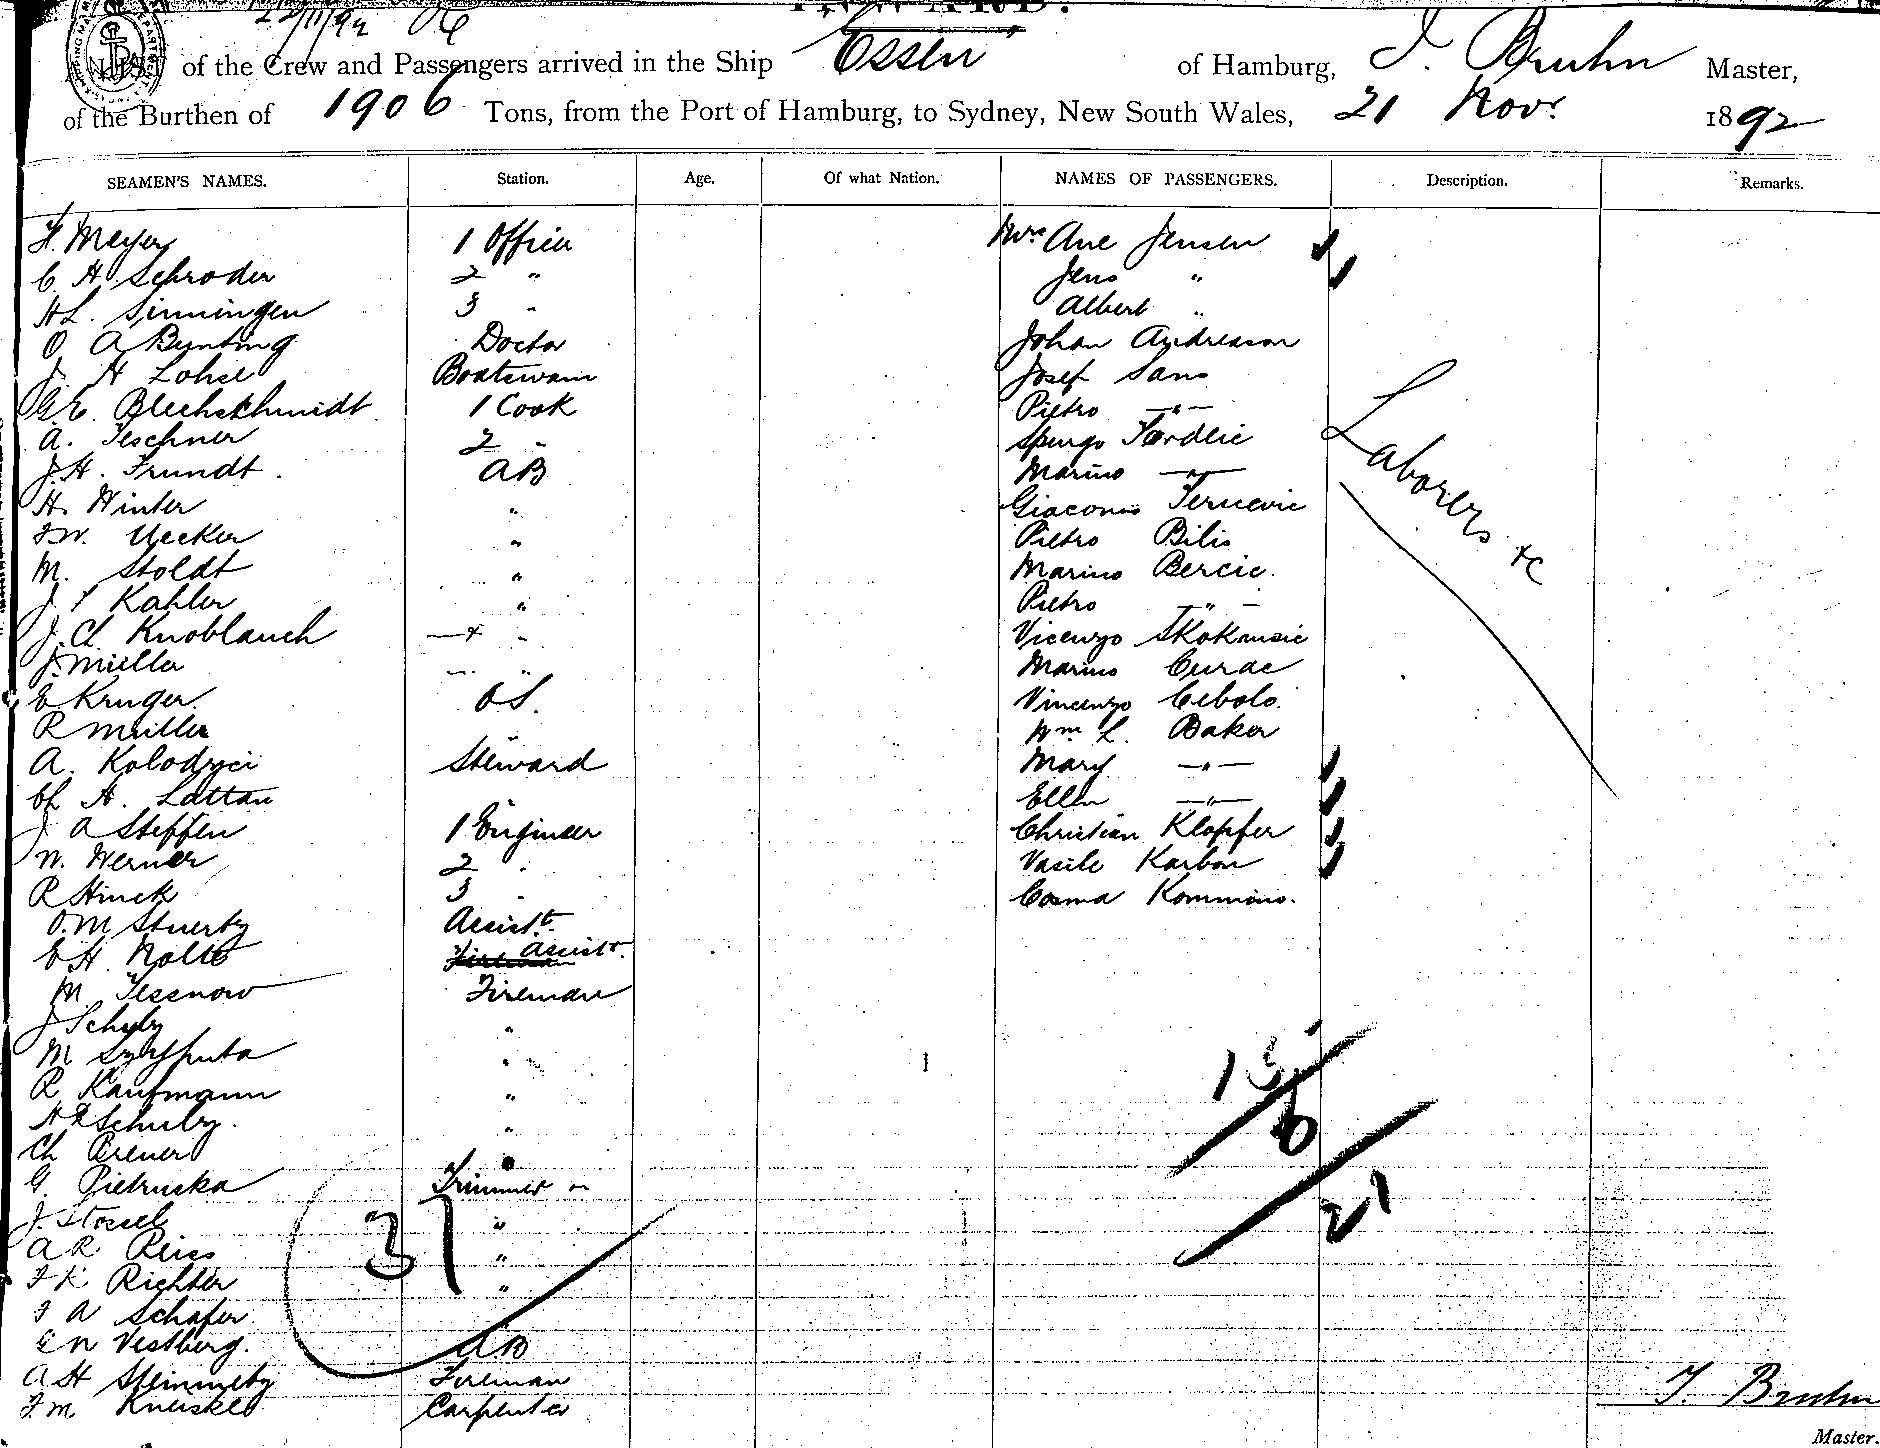 22/11/92 06
A LIST of the Crew and Passengers arrived in the Ship "Essen" of Hamburg, J. Bruhn Master,
of the Burthen of 1906 Tons, from the Port of Hamburg, to Sydney, New South Wales, 21 Novr. 1892
SEAMEN'S NAMES. Station. Age. Of what Nation. NAMES OF PASSENGERS. Description. Remarks.
H. Meyer 1 Officer Mrs Ane Jensen
C. H Schroder 2 " Jens "
H L. Sinningen 3 " Albert "
O A Bunting Doctor Johan Andreason
J. H Lohse Boatswain Josef Sans
G. E. Blechschmidt 1 Cook Pietro —"—
A. Teschner 2 " Tardlic
J. H. Frundt. AB Marino —"—
H. Winter " Giacomo
F W. Uecker " Pietro Bilis
M. Stoldt " Marino Bercic.
J. Kahler " Pietro —"—
J. Cl. Knoblauch " Vicenzo Skokrusic
J. Müller " Marino Curac
E Kruger. OS. Vincenzo Cebolo.
R Müller " Wm L. Baker
A. Kolodzici Steward Mary —"—
A. Lattau Ellen —"—
J A Steffen 1 Engineer Christian Klopfer
W. Werner 2 " Vasile Karbon
R Hinck 3 " Cosma Kommino.
O. M Stuertz Assistt.
E H. Nolte Fireman Assistt.
M. Tessnow Fireman
J Schulz "
M "
R Kaufmann "
H R Schulz. "
Ch Brener "
G. Pietruska Trimmer
J. Stossel "
A R Reiss "
F K Richter "
F A Schafer.
E N Vestberg. AB
A H Steinmetz Fireman
F. M. Carpenter
Laborers &c
37
15
6
21
J. Bruhn
Master.